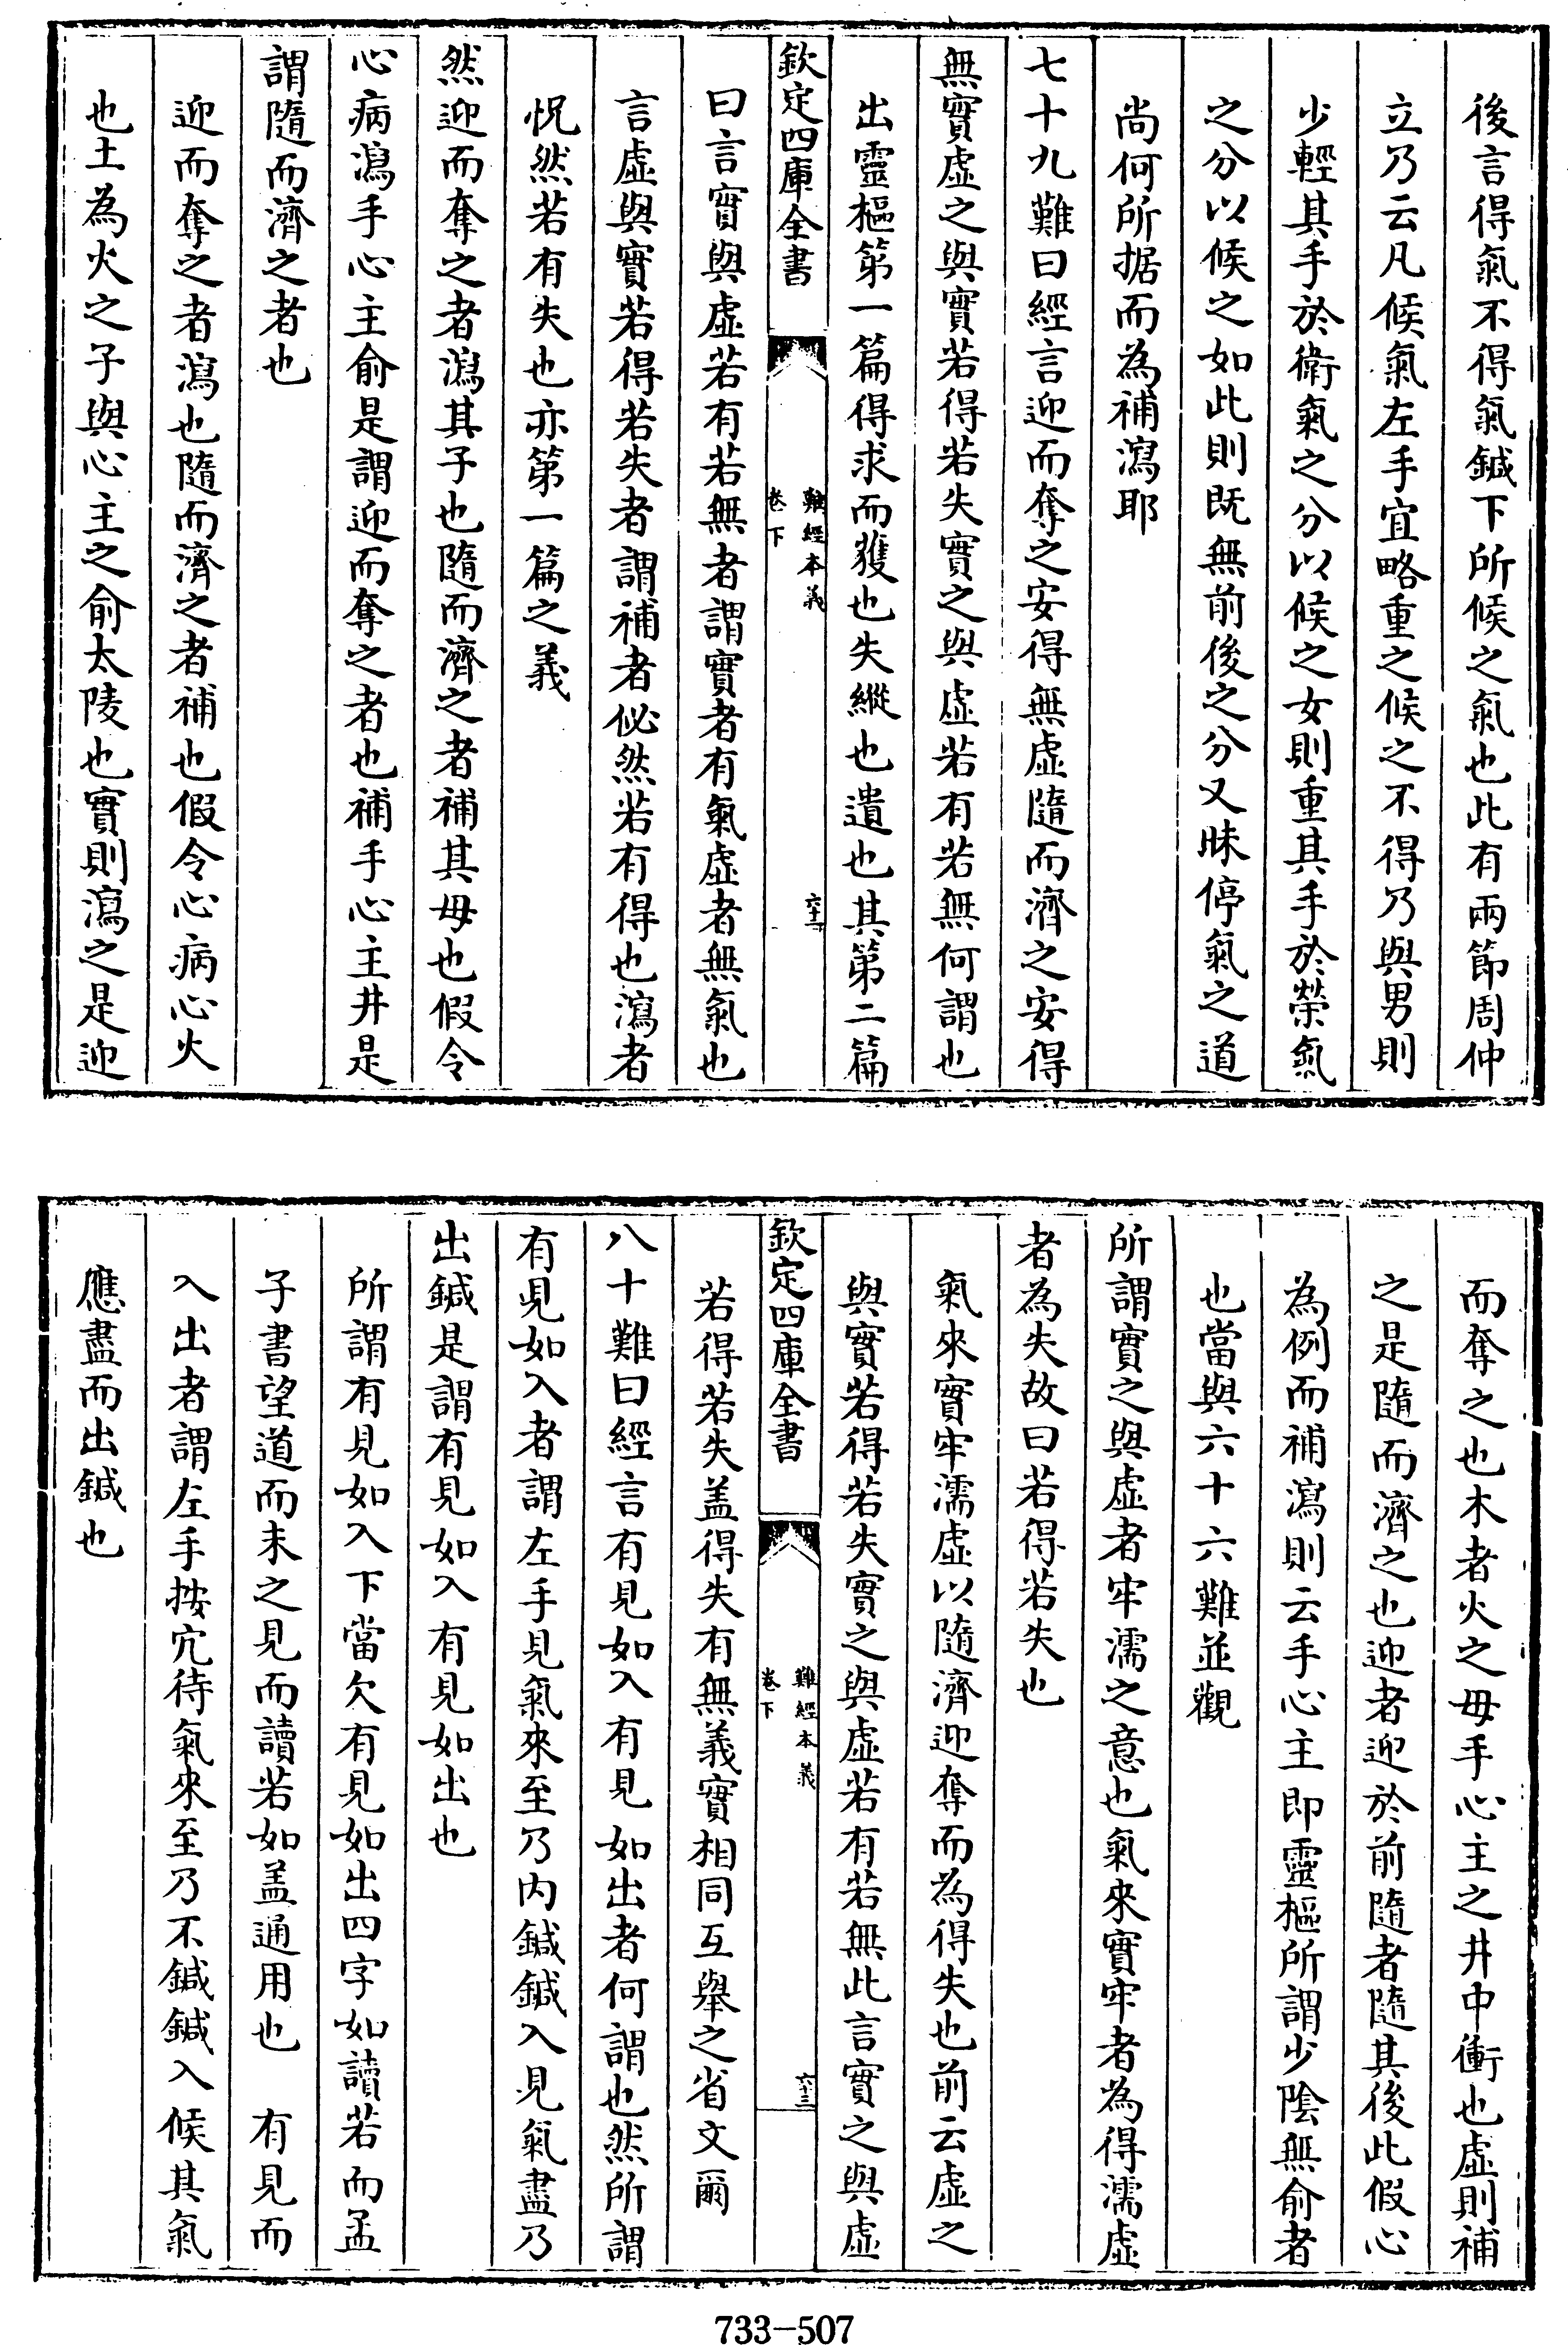 後言得氣不得氣鍼下所候之氣也此有兩節周仲
立乃云凡候氣左手宜略重之候之不得乃與男則
少輕其手於衛氣之分以候之女則重其手於榮氣
之分以候之如此則既無前後之分又昧停氣之道
尚何所据而為補瀉耶
七十九難曰經言迎而奪之安得無虛隨而濟之安得
無實虛之與實若得若失實之與虛若有若無何謂也
出靈樞第一篇得求而獲也失縱也遺也其第二篇
欽定四庫全書
難經本義
卷下
六十二
曰言實與虛若有若無者謂實者有氣虛者無氣也
言虛與實若得若失者謂補者佖然若有得也瀉者
怳然若有失也亦第一篇之義
然迎而奪之者瀉其子也隨而濟之者補其母也假令
心病瀉手心主俞是謂迎而奪之者也補手心主井是
謂隨而濟之者也
迎而奪之者瀉也隨而濟之者補也假令心病心火
也土為火之子與心主之俞太陵也實則瀉之是迎
而奪之也木者火之母手心主之井中衝也虛則補
之是隨而濟之也迎者迎於前隨者隨其後此假心
為例而補瀉則云手心主即靈樞所謂少陰無俞者
也當與六十六難並觀
所謂實之與虛者牢濡之意也氣來實牢者為得濡虛
者為失故曰若得若失也
氣來實牢濡虛以隨濟迎奪而為得失也前云虛之
與實若得若失實之與虛若有若無此言實之與虛
欽定四庫全書
難經本義
卷下
六十三
若得若失盖得失有無義實相同互舉之省文爾
八十難曰經言有見如入有見如出者何謂也然所謂
有見如入者謂左手見氣來至乃内鍼鍼入見氣盡乃
出鍼是謂有見如入有見如出也
所謂有見如入下當欠有見如出四字如讀若而孟
子書望道而未之見而讀若如盖通用也　有見而
入出者謂左手按穴待氣來至乃下鍼鍼入候其氣
應盡而出鍼也
733-507